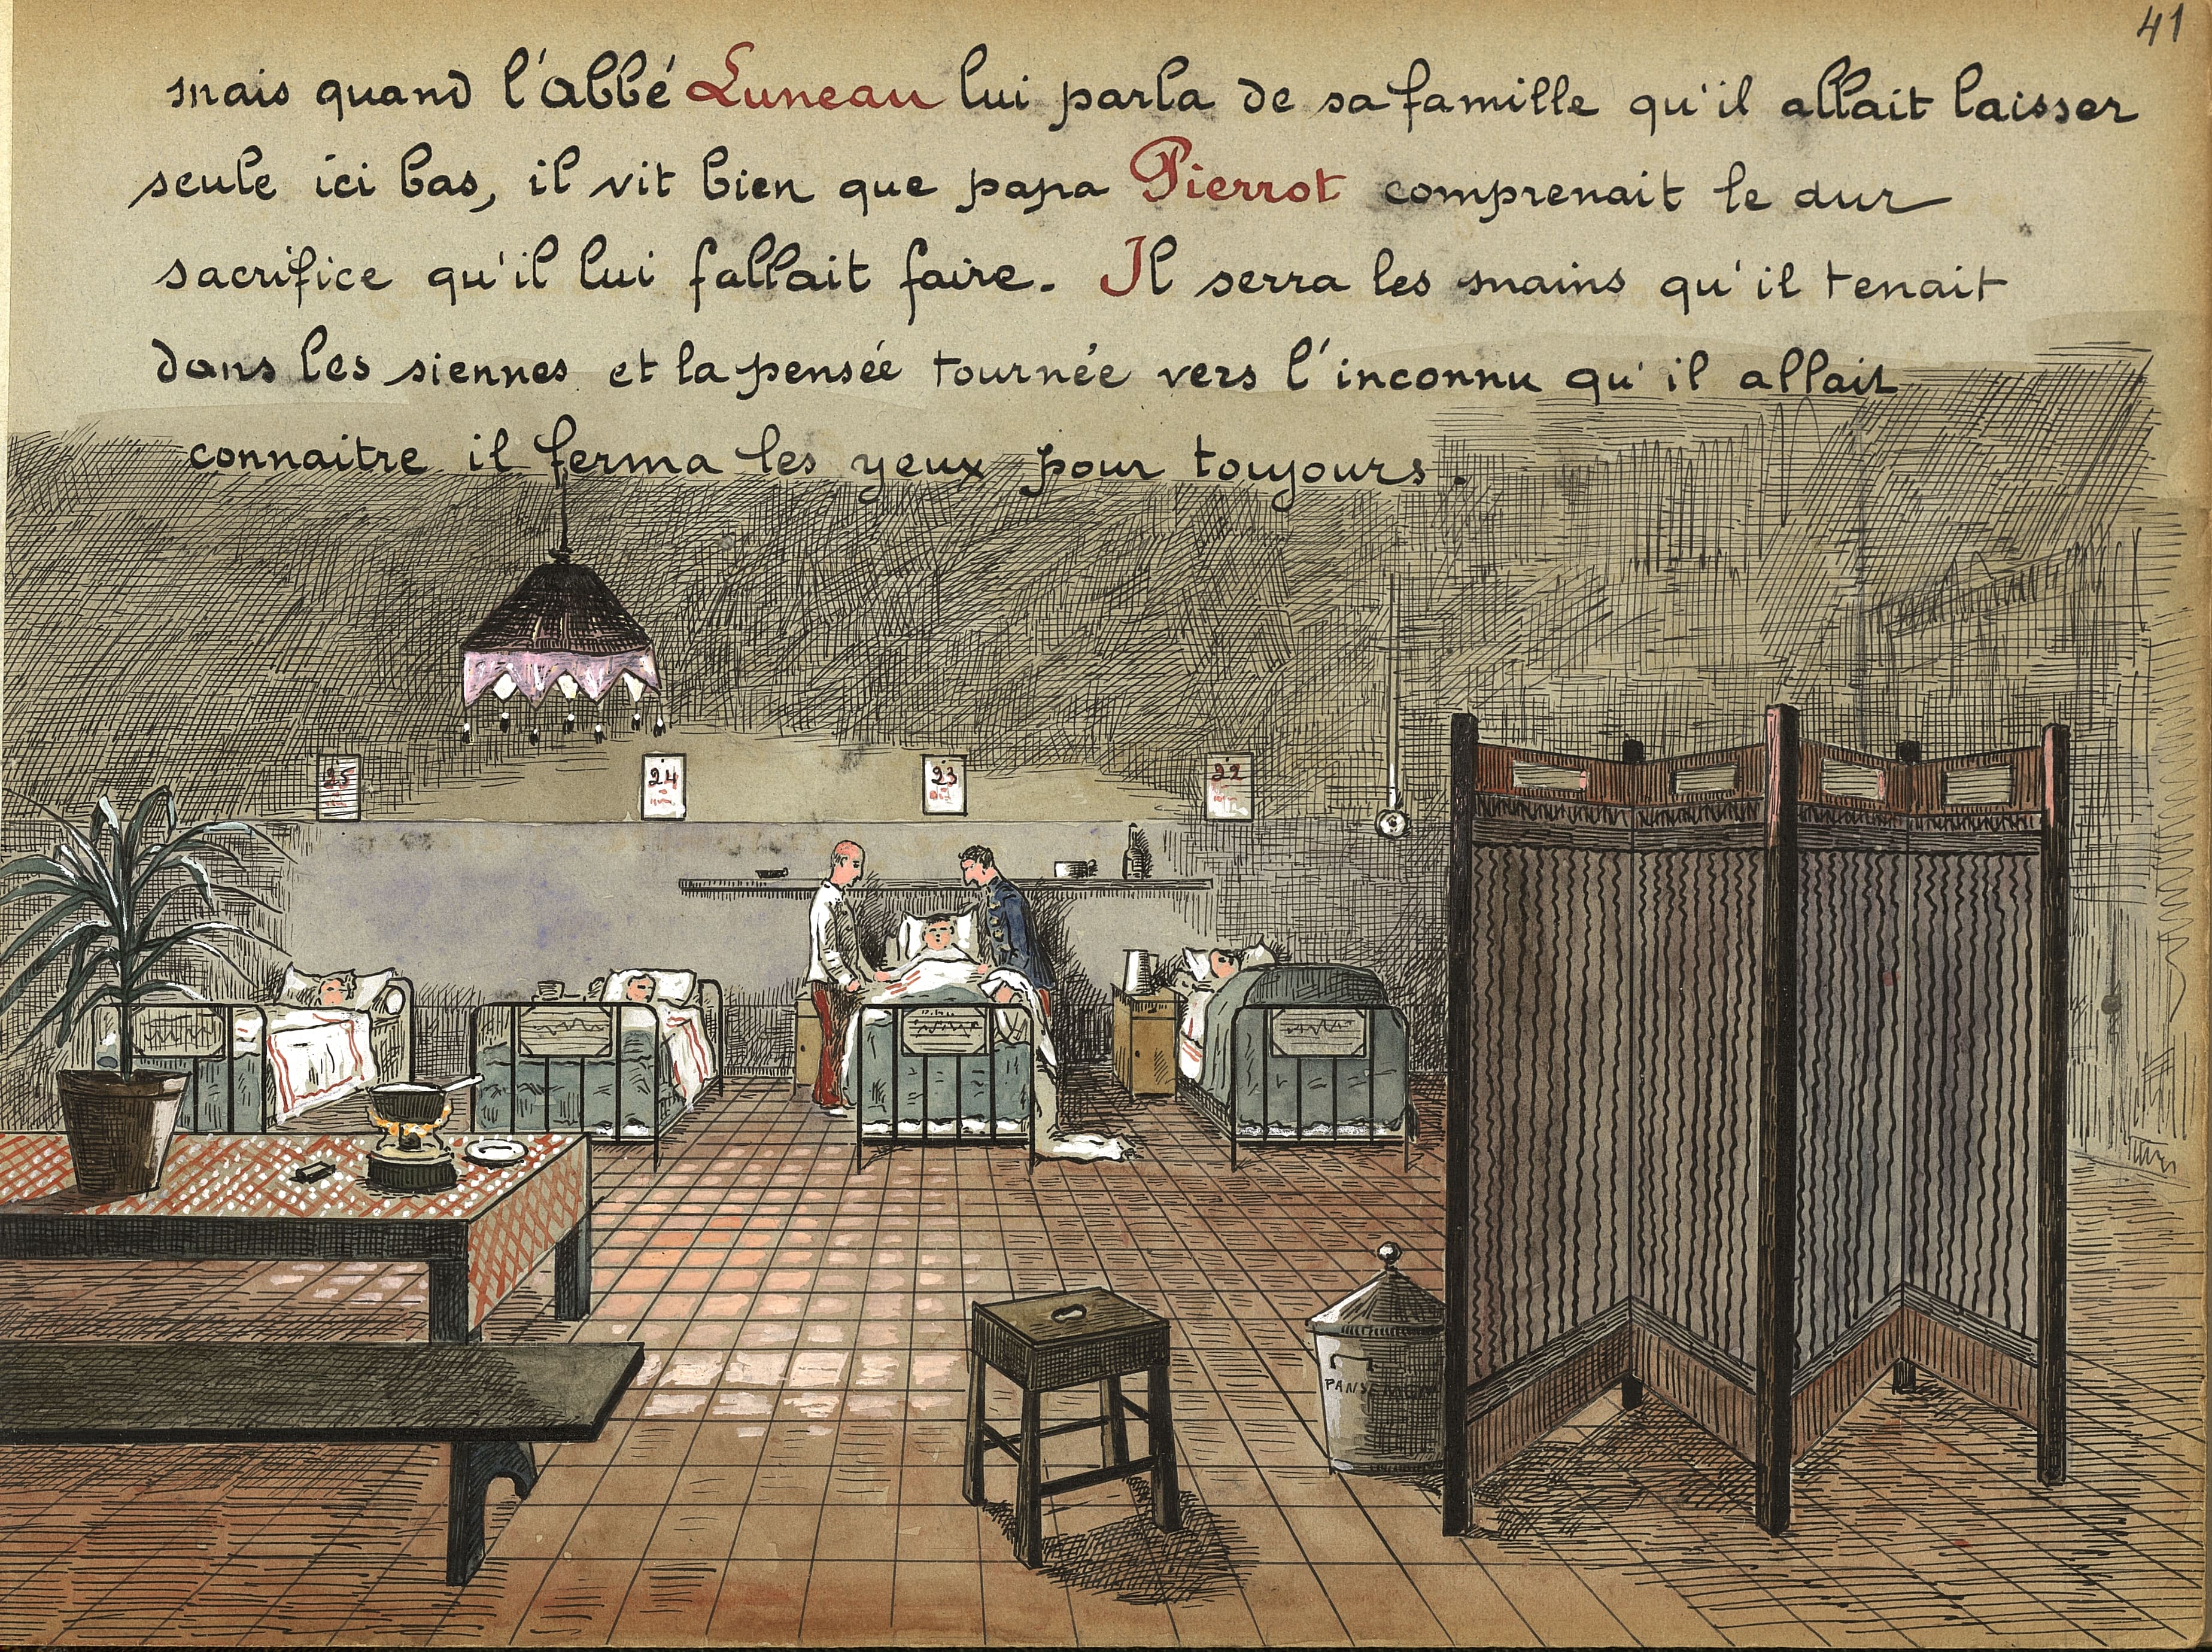 41
mais quand l'abbé Luneau lui parla de sa famille qu'il allait laisser
seule ici bas, il vit bien que papa Pierrot comprenait le dur
sacrifice qu'il lui fallait faire. Il serra les mains qu'il tenait
dans les siennes et la pensée tournée vers l'inconnu qu'il allait
connaitre il ferma les yeux pour toujours.
25
24
23
22